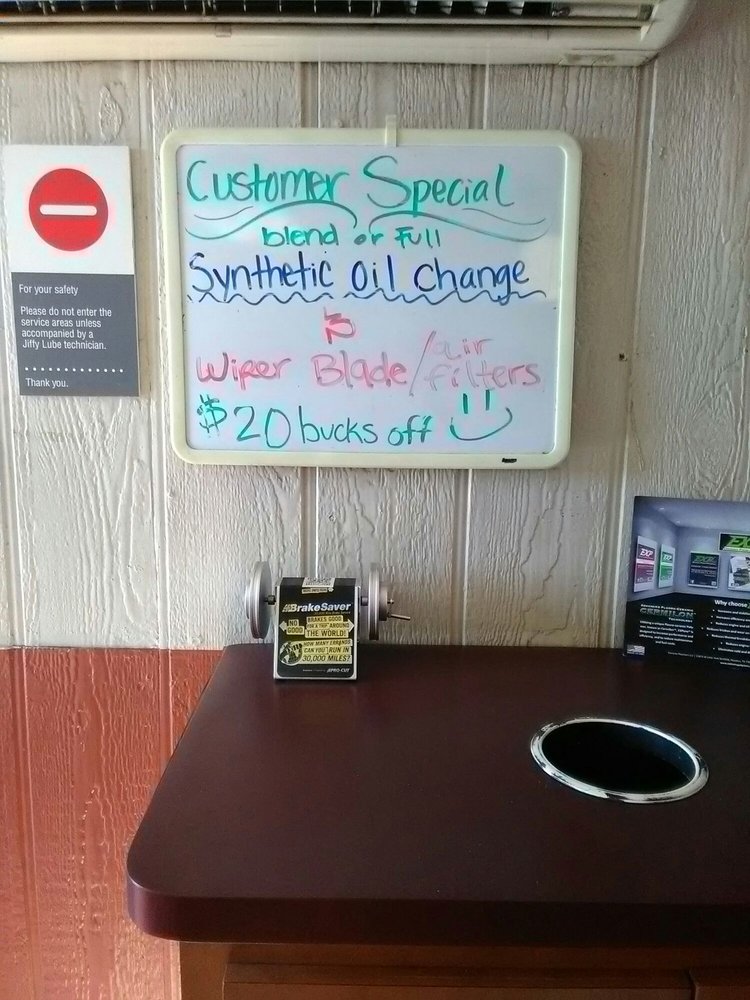 Customer Special
blend or Full
Synthetic oil change
Wiper Blade/air filters
$20 bucks off
For your safety
Please do not enter the
service areas unless
accompanied by a
Jiffy Lube technician.
Thank you.
BrakeSaver
NO GOOD
BRAKES GOOD
FOR A TRIP AROUND
THE WORLD!
HOW MANY ERRANDS
CAN YOU RUN IN
30,000 MILES?
PRO-CUT
EXP
EXP
EXP
CERMILON
Why choose